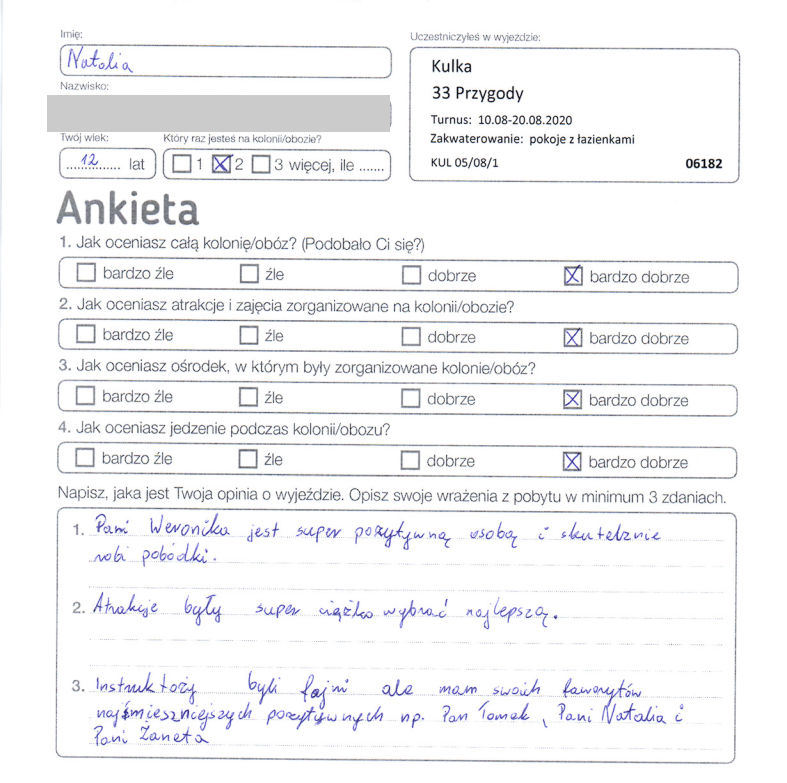 Imię:
Natalia
Nazwisko:
Twój wiek:
12 lat
Który raz jesteś na kolonii/obozie?
1 2 3 więcej, ile .......
Uczestniczyłeś w wyjeździe:
Kulka
33 Przygody
Turnus: 10.08-20.08.2020
Zakwaterowanie: pokoje z łazienkami
KUL 05/08/1 06182
Ankieta
1. Jak oceniasz całą kolonię/obóz? (Podobało Ci się?)
bardzo źle źle dobrze bardzo dobrze
2. Jak oceniasz atrakcje i zajęcia zorganizowane na kolonii/obozie?
bardzo źle źle dobrze bardzo dobrze
3. Jak oceniasz ośrodek, w którym były zorganizowane kolonie/obóz?
bardzo źle źle dobrze bardzo dobrze
4. Jak oceniasz jedzenie podczas kolonii/obozu?
bardzo źle źle dobrze bardzo dobrze
Napisz, jaka jest Twoja opinia o wyjeździe. Opisz swoje wrażenia z pobytu w minimum 3 zdaniach.
1. Pani Weronika jest super pozytywną osobą i skutecznie
robi pobódki.
2. Atrakcje były super ciężko wybrać najlepszą.
3. Instruktoży byli fajni ale mam swoich faworytów
najśmieszniejszych pozytywnych np. Pan Tomek, Pani Natalia i
Pani Żaneta